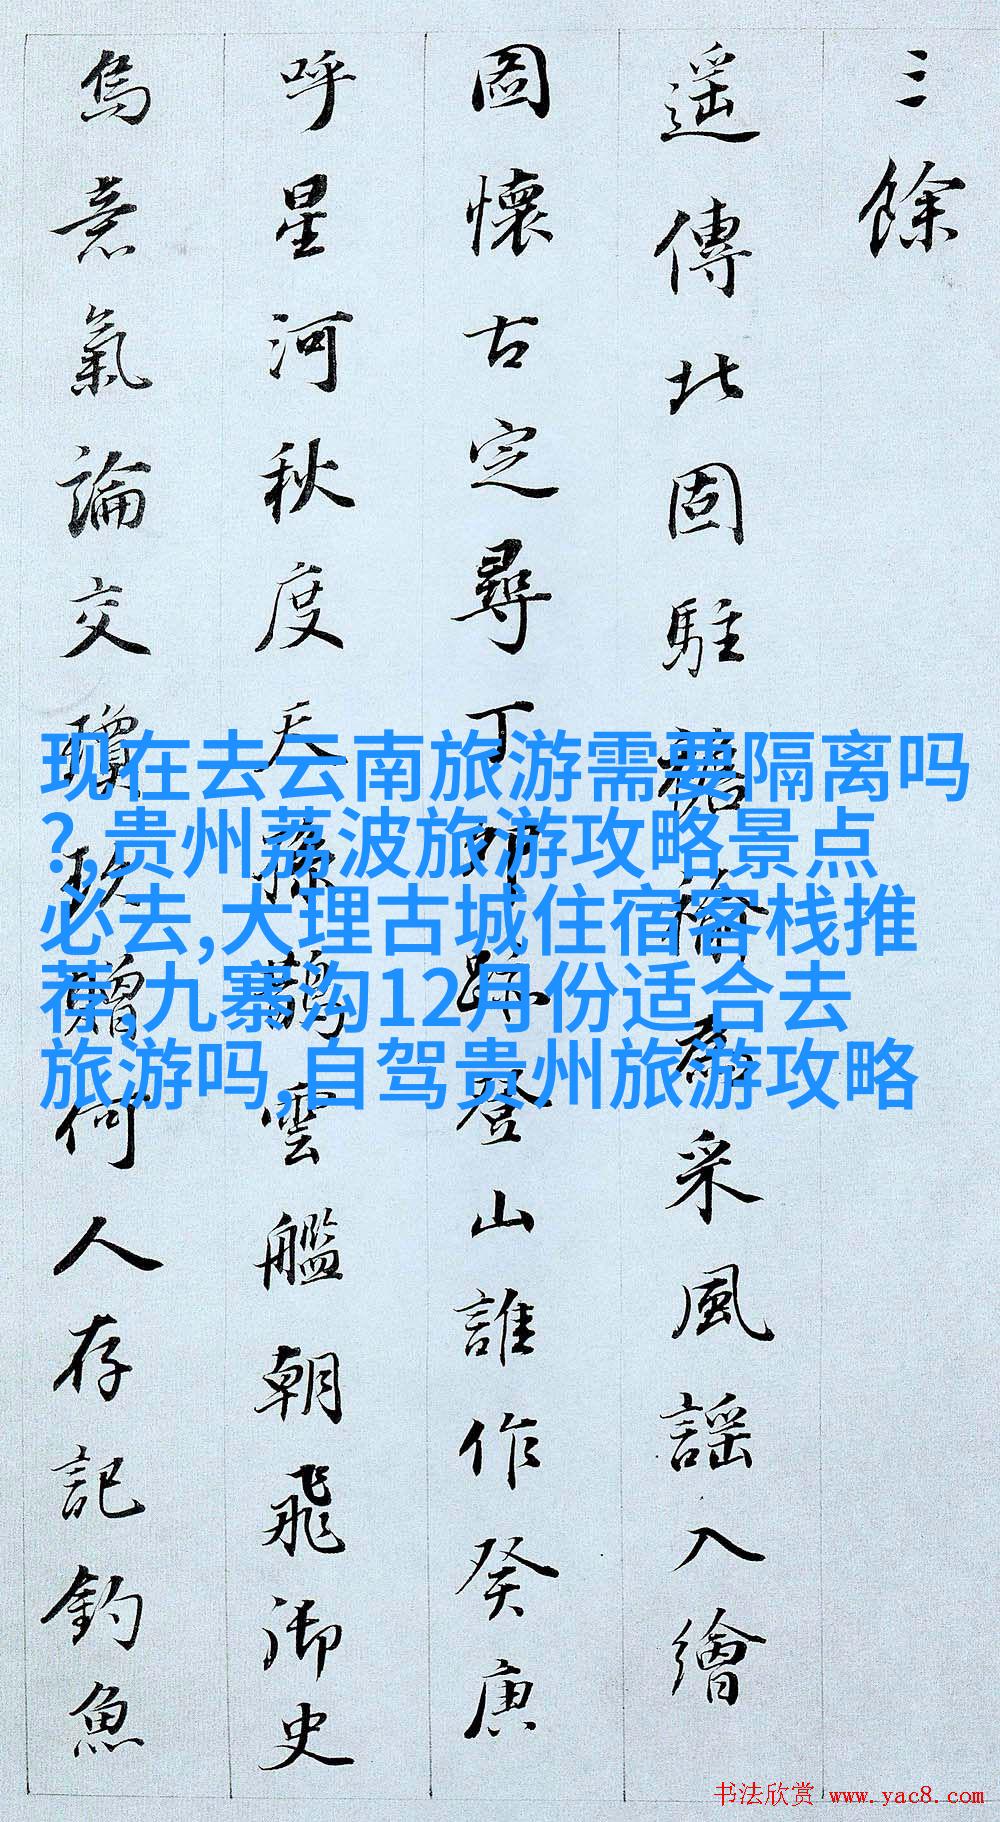 三餘
遥傳北固駐襜褕采風謡入繪
圖懷古定尋丁卯登山誰作癸庚
呼星河秋度天孫鵲雲艦朝飛御史
烏意氣論交瓊玖贈何人存記釣魚
现在去云南旅游需要隔离吗
?,贵州荔波旅游攻略景点
必去,大理古城住宿客栈推
荐,九寨沟12月份适合去
旅游吗,自驾贵州旅游攻略
书法欣赏 www.yac8.com